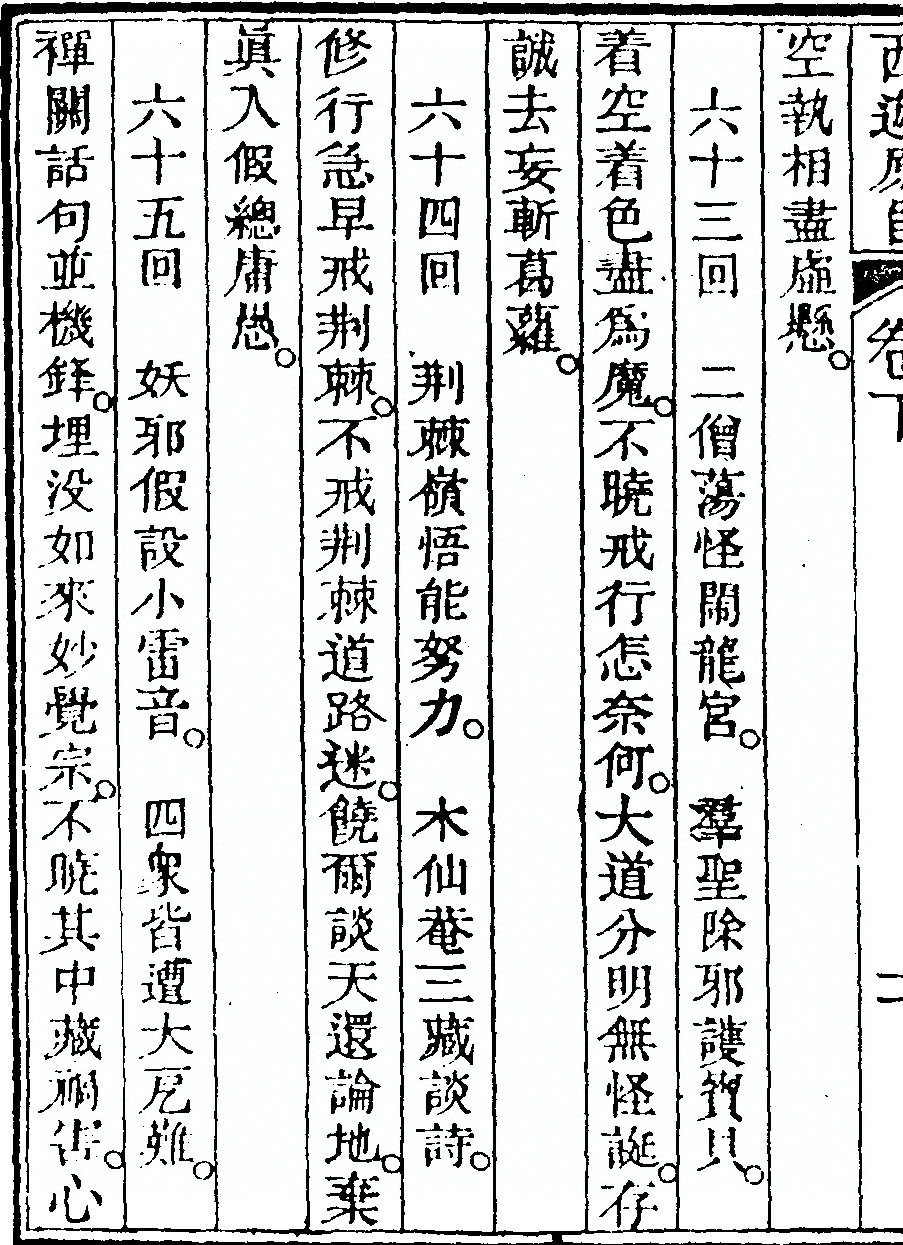 西遊原旨 卷下
空執相盡虛懸。
六十三回 二僧蕩怪鬧龍宮。 羣聖除邪護寶貝。
着空着色盡爲魔。不曉戒行怎奈何。大道分明無怪誕。存
誠去妄斬葛蘿。
六十四回 荆棘嶺悟能努力。 木仙菴三藏談詩。
修行急早戒荆棘。不戒荆棘道路迷。饒爾談天還論地。棄
眞入假總庸愚。
六十五回 妖邪假設小雷音。 四衆皆遭大厄難。
禪關話句並機鋒。埋没如來妙覺宗。不曉其中藏禍害。心